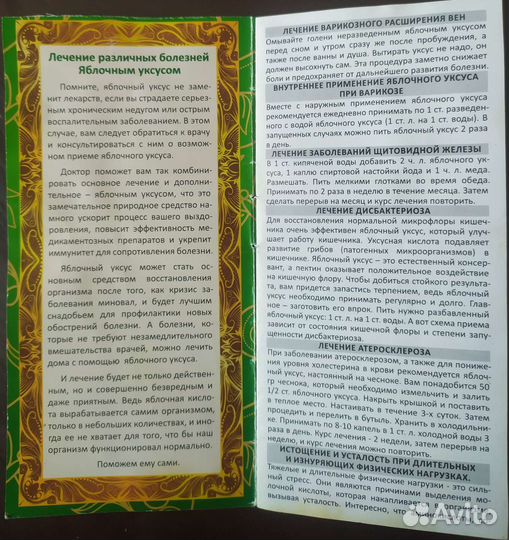 Лечение различных болезней
Яблочным уксусом
Помните, яблочный уксус не заме-
нит лекарств, если вы страдаете серьез-
ным хроническим недугом или острым
воспалительным заболеванием. В этом
случае, вам следует обратиться к врачу
и консультироваться с ним о возмож-
ном приеме яблочного уксуса.
Доктор поможет вам так комбини-
ровать основное лечение и дополнитель-
ное – яблочным уксусом, что это
замечательное природное средство на-
много ускорит процесс вашего выздо-
ровления, повысит эффективность ме-
дикаментозных препаратов и укрепит
иммунитет для сопротивления болезни.
Яблочный уксус может стать ос-
новным средством восстановления
организма после того, как кризис за-
болевания миновал, и будет лучшим
снадобьем для профилактики новых
обострений болезни. А болезни, ко-
торые не требуют незамедлительного
вмешательства врачей, можно лечить
дома с помощью яблочного уксуса.
И лечение будет не только действен-
ным, но и совершенно безвредным и
даже приятным. Ведь яблочная кислота
вырабатывается самим организмом,
только в небольших количествах, и ино-
гда ее не хватает для того, что бы наш
организм функционировал нормально.
Поможем ему сами.
ЛЕЧЕНИЕ ВАРИКОЗНОГО РАСШИРЕНИЯ ВЕН
Омывайте голени неразведенным яблочным уксусом
перед сном и утром сразу же после пробуждения, а
также после ванны и душа. Вытирать уксус не надо, он
должен высохнуть сам. Эта процедура заметно снижает
боли и предохраняет от дальнейшего развития болезни.
ВНУТРЕННЕЕ ПРИМЕНЕНИЕ ЯБЛОЧНОГО УКСУСА
ПРИ ВАРИКОЗЕ
Вместе с наружным применением яблочного уксуса
рекомендуется ежедневно принимать по 1 ст. разведен-
ного с водой яблочного уксуса (1 ст. л. на 1 ст. воды). В
запущенных случаях можно пить яблочный уксус 2 раза
в день.
ЛЕЧЕНИЕ ЗАБОЛЕВАНИЙ ЩИТОВИДНОЙ ЖЕЛЕЗЫ
В 1 ст. кипяченой воды добавить 2 ч. л. яблочного ук-
суса, 1 каплю спиртовой настойки йода и 1 ч. л. меда.
Размешать. Пить мелкими глотками во время обеда.
Принимать по 2 раза в неделю в течение месяца. Затем
сделать перерыв на месяц и курс лечения повторить.
ЛЕЧЕНИЕ ДИСБАКТЕРИОЗА
Для восстановления нормальной микрофлоры кишеч-
ника очень эффективен яблочный уксус, который улуч-
шает работу кишечника. Уксусная кислота подавляет
развитие грибов (патогенных микроорганизмов) в
кишечнике. Яблочный уксус – это естественный консер-
вант, а пектин оказывает положительное воздействие
на кишечную флору. Чтобы добиться стойкого результа-
та, вам придется запастись терпением, ведь яблочный
уксус необходимо принимать регулярно и долго. Глав-
ное – заготовить его впрок. Пить нужно разбавленный
яблочный уксус: 1 ст. л. на 1 ст. воды. А вот схема приема
зависит от состояния кишечной флоры и степени запу-
щенности дисбактериоза.
ЛЕЧЕНИЕ АТЕРОСКЛЕРОЗА
При заболевании атеросклерозом, а также для пониже-
ния уровня холестерина в крови рекомендуется яблоч-
ный уксус, настоянный на чесноке. Вам понадобится 50
гр чеснока, который необходимо измельчить и залить
1/2 ст. яблочного уксуса. Накрыть крышкой и поставить
в теплое место. Настаивать в течение 3-х суток. Затем
процедить и перелить в бутыль. Хранить в холодильни-
ке. Принимать по 8-10 капель в 1 ст. холодной воды 3
раза в день. Курс лечения - 2 недели, затем перерыв на
неделю, и курс лечения можно повторить.
ИСТОЩЕНИЕ И УСТАЛОСТЬ ПРИ ДЛИТЕЛЬНЫХ
И ИЗНУРЯЮЩИХ ФИЗИЧЕСКИХ НАГРУЗКАХ.
Тяжелые и длительные физические нагрузки - это силь-
ный стресс. Они являются причинами выделения мо-
лочной кислоты, которая накапливает
вызывая усталость. Интересно, что
Avito